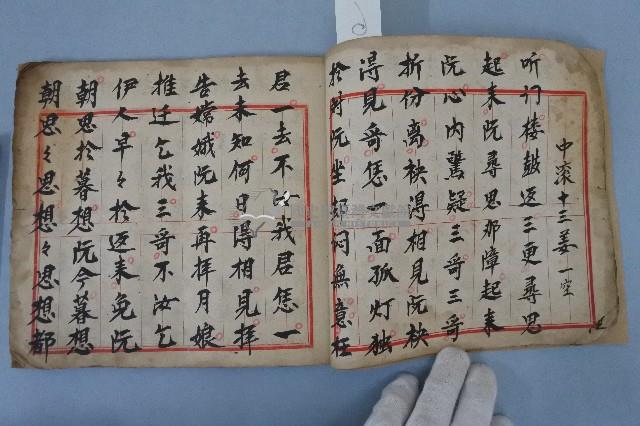 中滚十三姜一空
听门楼鼓返三更尋思
起来阮尋思那障起来
阮心内驚疑三哥三哥
折份离袂得相見阮袂
得見哥恁一面孤灯独
於时阮坐纱闷無意在
君一去不改我君恁一
去未知何日得相見拜
告嫦娥阮来再拜月娘
推迁乞我三哥不汝乞
伊人早々於返来免阮
朝思於暮想阮今暮想
朝思々思想々思想都